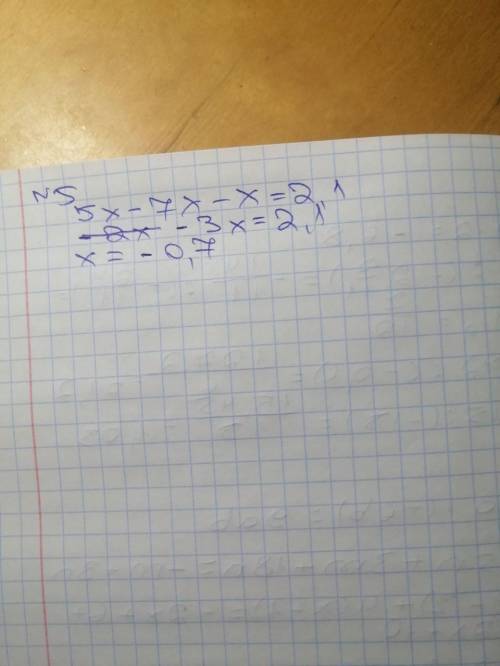 №5
5x - 7x - x = 2,1
-2x - 3x = 2,1
x = - 0,7